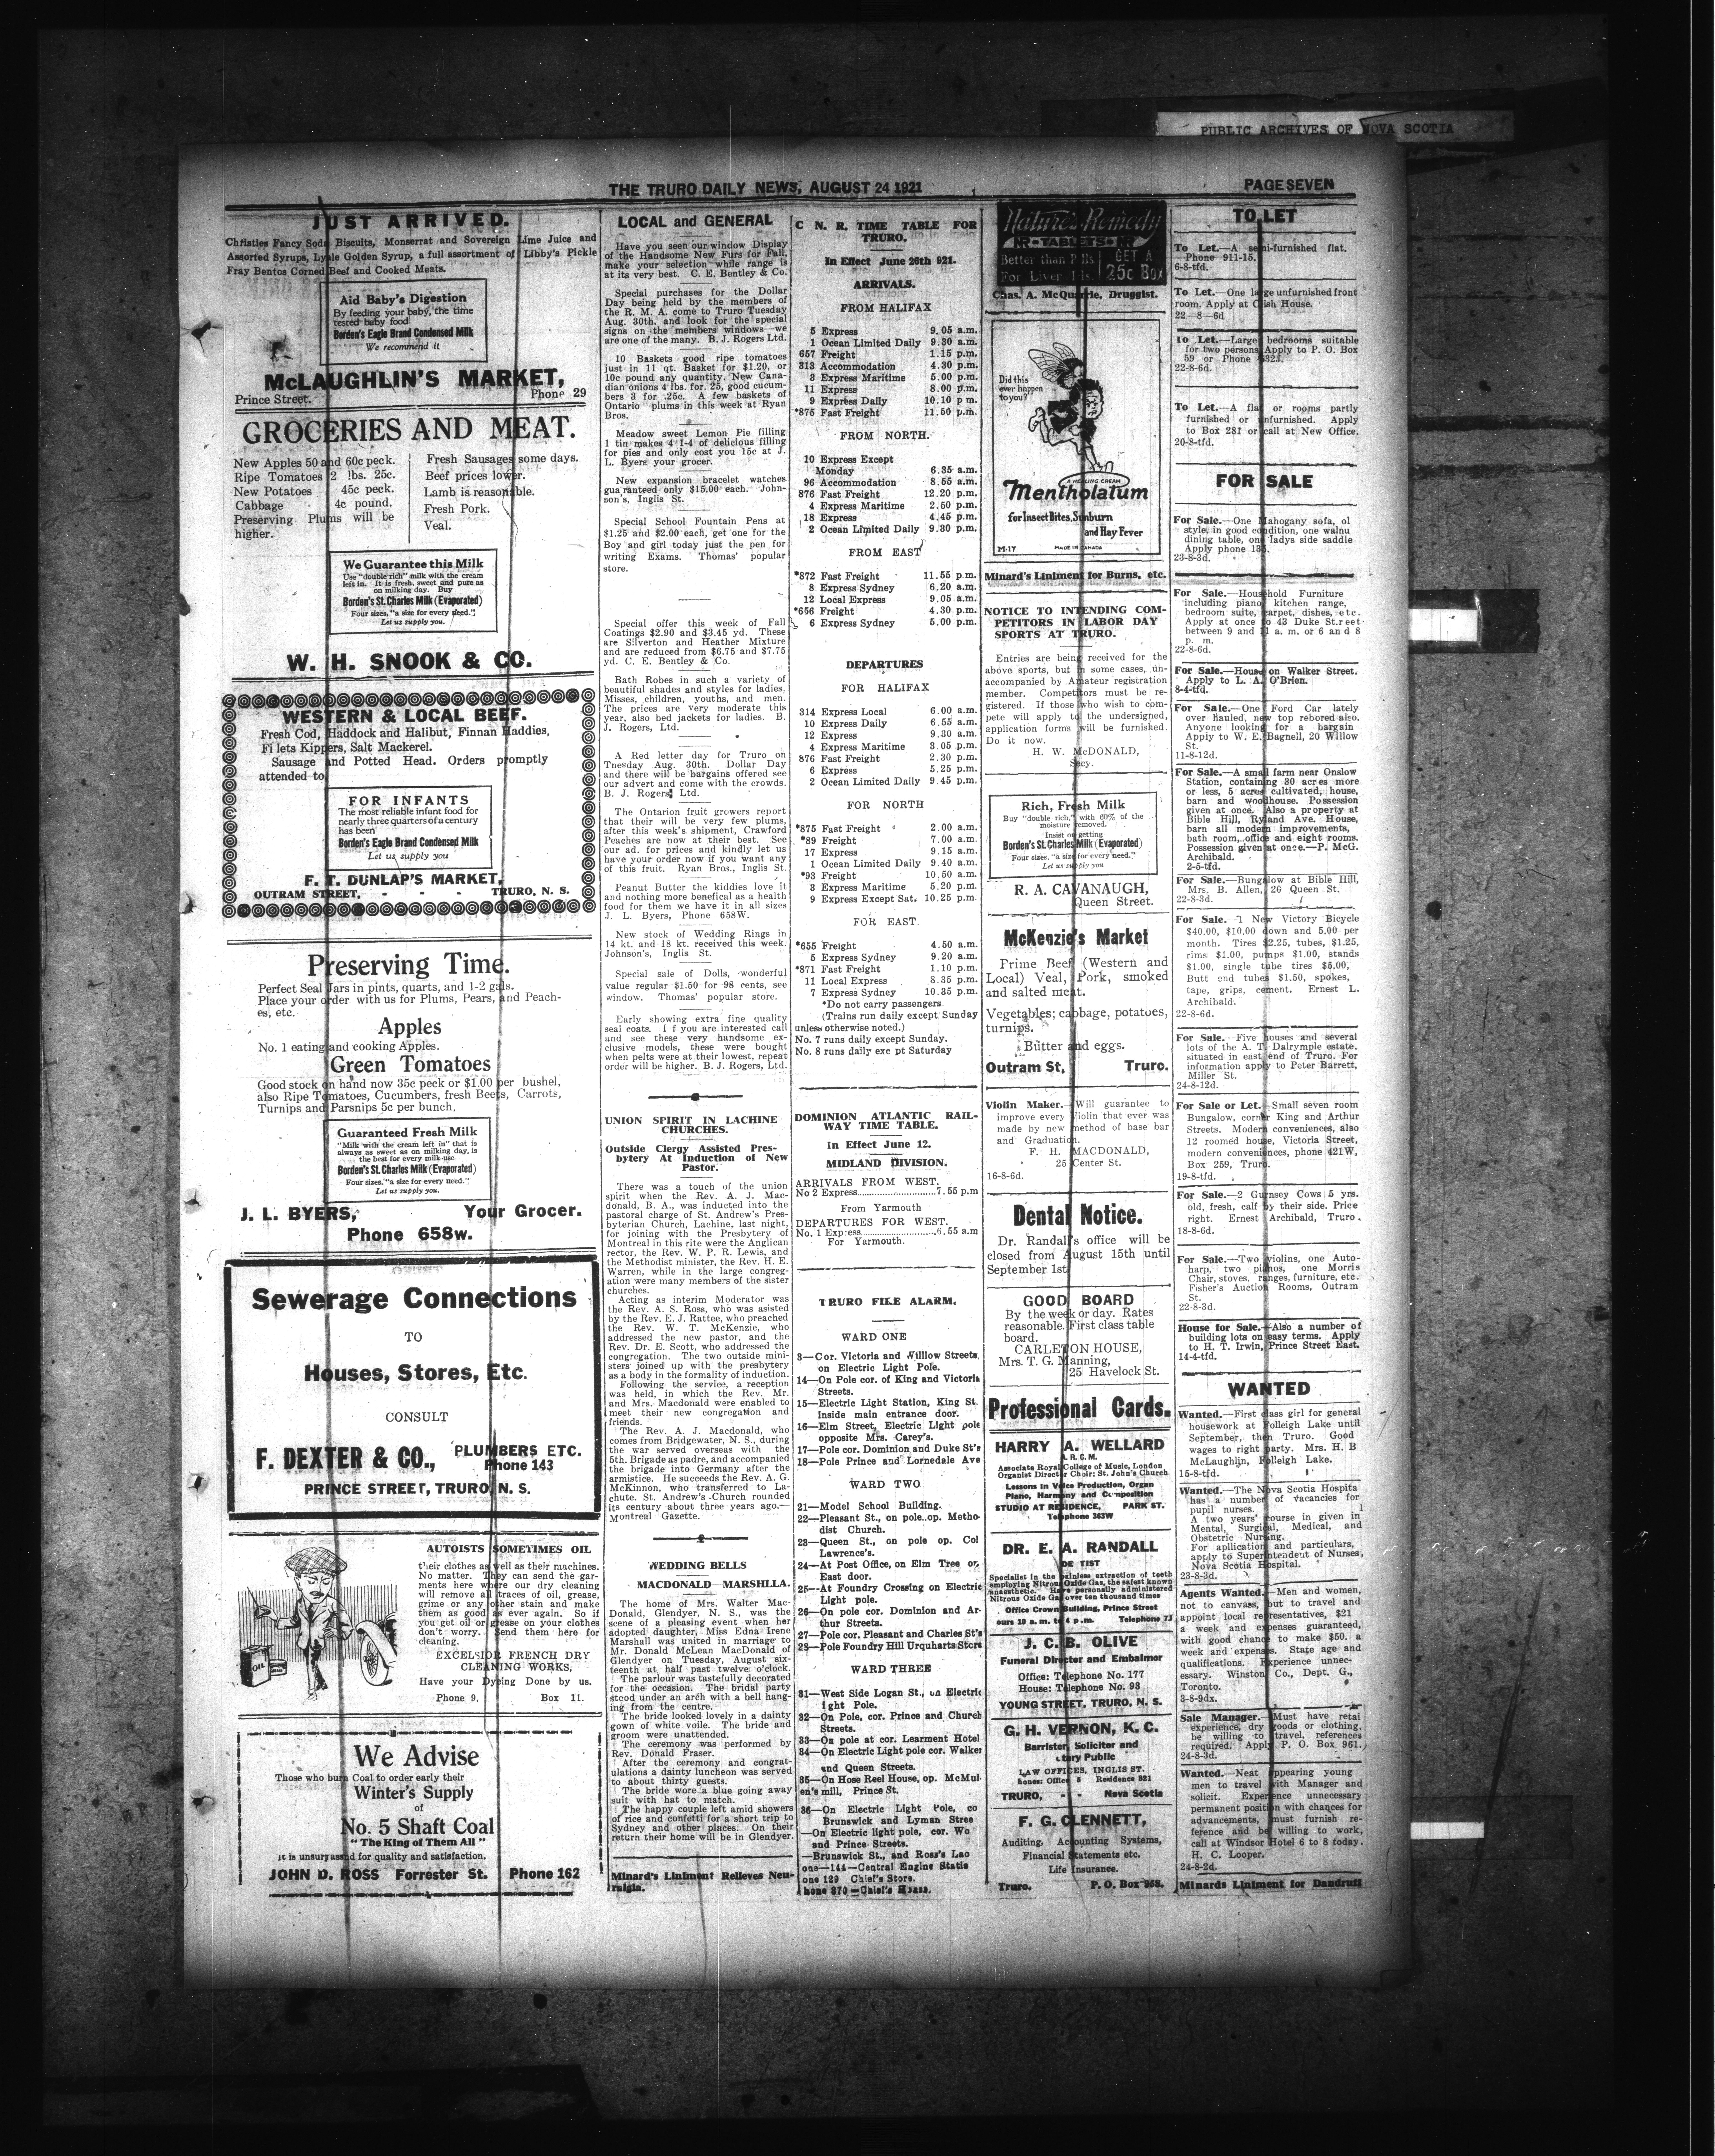 PUBLIC ARCHIVES OF NOVA SCOTIA
THE TRURO DAILY NEWS, AUGUST 24 1921
PAGE SEVEN
JUST ARRIVED.
Christies Fancy Soda Biscuits, Monserrat and Sovereign Lime Juice and
Assorted Syrups, Lyale Golden Syrup, a full assortment of Libby's Pickle
Fray Bentos Corned Beef and Cooked Meats.
Aid Baby's Digestion
By feeding your baby, the time
tested baby food
Borden's Eagle Brand Condensed Milk
We recommend it
McLAUGHLIN'S MARKET,
Prince Street.
Phone 29
GROCERIES AND MEAT.
New Apples 50 and 60c peck.
Ripe Tomatoes 2 lbs. 25c.
New Potatoes 45c peck.
Cabbage 4c pound.
Preserving Plums will be
higher.
Fresh Sausages some days.
Beef prices lower.
Lamb is reasonable.
Fresh Pork.
Veal.
We Guarantee this Milk
Use "double rich" milk with the cream
left in. It is fresh, sweet and pure as
on milking day. Buy
Borden's St. Charles Milk (Evaporated)
Four sizes, "a size for every need."
Let us supply you.
W. H. SNOOK & CO.
WESTERN & LOCAL BEEF.
Fresh Cod, Haddock and Halibut, Finnan Haddies,
Fi lets Kippers, Salt Mackerel.
Sausage and Potted Head. Orders promptly
attended to
FOR INFANTS
The most reliable infant food for
nearly three quarters of a century
has been
Borden's Eagle Brand Condensed Milk
Let us supply you
F. T. DUNLAP'S MARKET,
OUTRAM STREET, - - - TRURO, N. S.
Preserving Time.
Perfect Seal Jars in pints, quarts, and 1-2 gals.
Place your order with us for Plums, Pears, and Peach-
es, etc.
Apples
No. 1 eating and cooking Apples.
Green Tomatoes
Good stock on hand now 35c peck or $1.00 per bushel,
also Ripe Tomatoes, Cucumbers, fresh Beets, Carrots,
Turnips and Parsnips 5c per bunch.
Guaranteed Fresh Milk
"Milk with the cream left in" that is
always as sweet as on milking day, is
the best for every milk-use
Borden's St. Charles Milk (Evaporated)
Four sizes, "a size for every need."
Let us supply you.
J. L. BYERS, Your Grocer.
Phone 658w.
Sewerage Connections
TO
Houses, Stores, Etc.
CONSULT
F. DEXTER & CO., PLUMBERS ETC.
Phone 143
PRINCE STREET, TRURO, N. S.
AUTOISTS SOMETIMES OIL
their clothes as well as their machines.
No matter. They can send the gar-
ments here where our dry cleaning
will remove all traces of oil, grease,
grime or any other stain and make
them as good as ever again. So if
you get oil or grease on your clothes
don't worry. Send them here for
cleaning.
EXCELSIOR FRENCH DRY
CLEANING WORKS,
Have your Dyeing Done by us.
Phone 9. Box 11.
OIL
We Advise
Those who burn Coal to order early their
Winter's Supply
of
No. 5 Shaft Coal
"The King of Them All"
it is unsurpassed for quality and satisfaction.
JOHN D. ROSS Forrester St. Phone 162
LOCAL and GENERAL
Have you seen our window Display
of the Handsome New Furs for Fall,
make your selection while range is
at its very best. C. E. Bentley & Co.
Special purchases for the Dollar
Day being held by the members of
the R. M. A. come to Truro Tuesday
Aug. 30th. and look for the special
signs on the members windows—we
are one of the many. B. J. Rogers Ltd.
10 Baskets good ripe tomatoes
just in 11 qt. Basket for $1.20, or
10c pound any quantity. New Cana-
dian onions 4 lbs. for. 25, good cucum-
bers 3 for .25c. A few baskets of
Ontario plums in this week at Ryan
Bros.
Meadow sweet Lemon Pie filling
1 tin makes 4 1-4 of delicious filling
for pies and only cost you 15c at J.
L. Byers your grocer.
New expansion bracelet watches
guaranteed only $15.00 each. John-
son's, Inglis St.
Special School Fountain Pens at
$1.25 and $2.00 each, get one for the
Boy and girl today just the pen for
writing Exams. Thomas' popular
store.
Special offer this week of Fall
Coatings $2.90 and $3.45 yd. These
are Silverton and Heather Mixture
and are reduced from $6.75 and $7.75
yd. C. E. Bentley & Co.
Bath Robes in such a variety of
beautiful shades and styles for ladies,
Misses, children, youths, and men.
The prices are very moderate this
year, also bed jackets for ladies. B.
J. Rogers, Ltd.
A Red letter day for Truro on
Tnesday Aug. 30th. Dollar Day
and there will be bargains offered see
our advert and come with the crowds.
B. J. Rogers, Ltd.
The Ontarion fruit growers report
that their will be very few plums,
after this week's shipment, Crawford
Peaches are now at their best. See
our ad. for prices and kindly let us
have your order now if you want any
of this fruit. Ryan Bros., Inglis St.
Peanut Butter the kiddies love it
and nothing more benefical as a health
food for them we have it in all sizes
J. L. Byers, Phone 658W.
New stock of Wedding Rings in
14 kt. and 18 kt. received this week.
Johnson's, Inglis St.
Special sale of Dolls, wonderful
value regular $1.50 for 98 cents, see
window. Thomas' popular store.
Early showing extra fine quality
seal coats. I f you are interested call
and see these very handsome ex-
clusive models, these were bought
when pelts were at their lowest, repeat
order will be higher. B. J. Rogers, Ltd.
UNION SPIRIT IN LACHINE
CHURCHES.
Outside Clergy Assisted Pres-
bytery At Induction of New
Pastor.
There was a touch of the union
spirit when the Rev. A. J. Mac-
donald, B. A., was inducted into the
pastoral charge of St. Andrew's Pres-
byterian Church, Lachine, last night,
for joining with the Presbytery of
Montreal in this rite were the Anglican
rector, the Rev. W. P. R. Lewis, and
the Methodist minister, the Rev. H. E.
Warren, while in the large congreg-
ation were many members of the sister
churches.
Acting as interim Moderator was
the Rev. A. S. Ross, who was asisted
by the Rev. E. J. Rattee, who preached
the Rev. W. T. McKenzie, who
addressed the new pastor, and the
Rev. Dr. E. Scott, who addressed the
congregation. The two outside mini-
sters joined up with the presbytery
as a body in the formality of induction.
Following the service, a reception
was held, in which the Rev. Mr.
and Mrs. Macdonald were enabled to
meet their new congregation and
friends.
The Rev. A. J. Macdonald, who
comes from Bridgewater, N. S., during
the war served overseas with the
5th. Brigade as padre, and accompanied
the brigade into Germany after the
armistice. He succeeds the Rev. A. G.
McKinnon, who transferred to La-
chute. St. Andrew's Church rounded
its century about three years ago.—
Montreal Gazette.
WEDDING BELLS
MACDONALD—MARSHLLA.
The home of Mrs. Walter Mac-
Donald, Glendyer, N. S., was the
scene of a pleasing event when her
adopted daughter, Miss Edna Irene
Marshall was united in marriage to
Mr. Donald McLean MacDonald of
Glendyer on Tuesday, August six-
teenth at half past twelve o'clock.
The parlour was tastefully decorated
for the occasion. The bridal party
stood under an arch with a bell hang-
ing from the centre.
The bride looked lovely in a dainty
gown of white voile. The bride and
groom were unattended.
The ceremony was performed by
Rev. Donald Fraser.
After the ceremony and congrat-
ulations a dainty luncheon was served
to about thirty guests.
The bride wore a blue going away
suit with hat to match.
The happy couple left amid showers
of rice and confetti for a short trip to
Sydney and other places. On their
return their home will be in Glendyer.
Minard's Liniment Relieves Neu-
ralgia.
C N. R. TIME TABLE FOR
TRURO.
In Effect June 26th 921.
ARRIVALS.
FROM HALIFAX
5 Express 9.05 a.m.
1 Ocean Limited Daily 9.30 a.m.
657 Freight 1.15 p.m.
313 Accommodation 4.30 p.m.
3 Express Maritime 5.00 p.m.
11 Express 8.00 p.m.
9 Express Daily 10.10 p m.
*875 Fast Freight 11.50 p.m.
FROM NORTH.
10 Express Except
Monday 6.35 a.m.
96 Accommodation 8.55 a.m.
876 Fast Freight 12.20 p.m.
4 Express Maritime 2.50 p.m.
18 Express 4.45 p.m.
2 Ocean Limited Daily 9.30 p.m.
FROM EAST
*872 Fast Freight 11.55 p.m.
8 Express Sydney 6.20 a.m.
12 Local Express 9.05 a.m.
*656 Freight 4.30 p.m.
6 Express Sydney 5.00 p.m.
DEPARTURES
FOR HALIFAX
314 Express Local 6.00 a.m.
10 Express Daily 6.55 a.m.
12 Express 9.30 a.m.
4 Express Maritime 3.05 p.m.
876 Fast Freight 2.30 p.m.
6 Express 5.25 p.m.
2 Ocean Limited Daily 9.45 p.m.
FOR NORTH
*875 Fast Freight 2.00 a.m.
*89 Freight 7.00 a.m.
17 Express 9.15 a.m.
1 Ocean Limited Daily 9.40 a.m.
*93 Freight 10.50 a.m.
3 Express Maritime 5.20 p.m.
9 Express Except Sat. 10.25 p.m.
FOR EAST.
*655 Freight 4.50 a.m.
5 Express Sydney 9.20 a.m.
*871 Fast Freight 1.10 p.m.
11 Local Express 8.35 p.m.
7 Express Sydney 10.35 p.m.
*Do not carry passengers
(Trains run daily except Sunday
unless otherwise noted.)
No. 7 runs daily except Sunday.
No. 8 runs daily exc pt Saturday
DOMINION ATLANTIC RAIL-
WAY TIME TABLE.
In Effect June 12.
MIDLAND DIVISION.
ARRIVALS FROM WEST.
No 2 Express 7.55 p.m
From Yarmouth
DEPARTURES FOR WEST.
No. 1 Express 6.55 a.m
For Yarmouth.
TRURO FIRE ALARM.
WARD ONE
3—Cor. Victoria and Willow Streets,
on Electric Light Pole.
14—On Pole cor. of King and Victoria
Streets.
15—Electric Light Station, King St.
inside main entrance door.
16—Elm Street, Electric Light pole
opposite Mrs. Carey's.
17—Pole cor. Dominion and Duke St's
18—Pole Prince and Lornedale Ave
WARD TWO
21—Model School Building.
22—Pleasant St., on pole op. Metho-
dist Church.
23—Queen St., on pole op. Col
Lawrence's.
24—At Post Office, on Elm Tree or
East door.
25—At Foundry Crossing on Electric
Light pole.
26—On pole cor. Dominion and Ar-
thur Streets.
27—Pole cor. Pleasant and Charles St's
28—Pole Foundry Hill Urquharts Store
WARD THREE
31—West Side Logan St., on Electric
ight Pole.
32—On Pole, cor. Prince and Church
Streets.
33—On pole at cor. Learment Hotel
34—On Electric Light pole cor. Walker
and Queen Streets.
35—On Hose Reel House, op. McMul-
en's mill, Prince St.
36—On Electric Light Pole, co
Brunswick and Lyman Stree
—On Electric light pole, cor. Wo
and Prince Streets.
—Brunswick St., and Ross's Lao
one—144—Central Engine Statio
one 129 Chief's Store.
hone 370—Chief's House.
Nature's Remedy
NR-TABLETS-NR
Better than Pills
For Liver Ills.
GET A
25c Box
Chas. A. McQuarrie, Druggist.
Did this
ever happen
to you?
A HEALING CREAM
Mentholatum
for Insect Bites, Sunburn
and Hay Fever
M-17
MADE IN CANADA
Minard's Liniment for Burns, etc.
NOTICE TO INTENDING COM-
PETITORS IN LABOR DAY
SPORTS AT TRURO.
Entries are being received for the
above sports, but in some cases, un-
accompanied by Amateur registration
member. Competitors must be re-
gistered. If those who wish to com-
pete will apply to the undersigned,
application forms will be furnished.
Do it now.
H. W. McDONALD,
Secy.
Rich, Fresh Milk
Buy "double rich," with 60% of the
moisture removed.
Insist on getting
Borden's St. Charles Milk (Evaporated)
Four sizes, "a size for every need."
Let us supply you
R. A. CAVANAUGH,
Queen Street.
McKenzie's Market
Frime Beef (Western and
Local) Veal, Pork, smoked
and salted meat.
Vegetables; cabbage, potatoes,
turnips.
Butter and eggs.
Outram St, Truro.
Violin Maker.—Will guarantee to
improve every Violin that ever was
made by new method of base bar
and Graduation.
F. H. MACDONALD,
25 Center St.
16-8-6d.
Dental Notice.
Dr. Randall's office will be
closed from August 15th until
September 1st.
GOOD BOARD
By the week or day. Rates
reasonable. First class table
board.
CARLETON HOUSE,
Mrs. T. G. Manning,
25 Havelock St.
Professional Cards.
HARRY A. WELLARD
A. R. C. M.
Associate Royal College of Music, London
Organist Director Choir; St. John's Church
Lessons in Voice Production, Organ
Piano, Harmony and Composition
STUDIO AT RESIDENCE, PARK ST.
Telephone 363W
DR. E. A. RANDALL
DE TIST
Specialist in the painless extraction of teeth
employing Nitrous Oxide Gas, the safest known
anaesthetic. Have personally administered
Nitrous Oxide Gas over ten thousand times
Office Crown Building, Prince Street
ours 10 a. m. to 4 p.m. Telephone 73
J. C. B. OLIVE
Funeral Director and Embalmer
Office: Telephone No. 177
House: Telephone No. 93
YOUNG STREET, TRURO, N. S.
G. H. VERNON, K. C.
Barrister, Solicitor and
tary Public
LAW OFFICES, INGLIS ST.
hones: Office 5 Residence 321
TRURO, - - Nova Scotia
F. G. CLENNETT,
Auditing, Accounting Systems,
Financial Statements etc.
Life Insurance.
Truro. P. O. Box 958.
TO LET
To Let.—A semi-furnished flat.
—Phone 911-15.
6-8-tfd.
To Let.—One large unfurnished front
room. Apply at Clish House.
22—8—6d
To Let.—Large bedrooms suitable
for two persons Apply to P. O. Box
59 or Phone 323.
22-8-6d.
To Let.—A flat or rooms partly
furnished or unfurnished. Apply
to Box 281 or call at New Office.
20-8-tfd.
FOR SALE
For Sale.—One Mahogany sofa, ol
style, in good condition, one walnu
dining table, one ladys side saddle
Apply phone 135.
23-8-3d.
For Sale.—Household Furniture
including piano, kitchen range,
bedroom suite, carpet, dishes, etc.
Apply at once to 43 Duke Street
between 9 and 11 a. m. or 6 and 8
p. m.
22-8-6d.
For Sale.—House on Walker Street.
Apply to L. A. O'Brien.
8-4-tfd.
For Sale.—One Ford Car lately
over Hauled, new top rebored also.
Anyone looking for a bargain
Apply to W. E. Bagnell, 20 Willow
St.
11-8-12d.
For Sale.—A small farm near Onslow
Station, containing 30 acres more
or less, 5 acres cultivated, house,
barn and woodhouse. Possession
given at once. Also a property at
Bible Hill, Ryland Ave. House,
barn all modern improvements,
bath room, office and eight rooms.
Possession given at once.—P. McG.
Archibald.
2-5-tfd.
For Sale.—Bungalow at Bible Hill,
Mrs. B. Allen, 26 Queen St.
22-8-3d.
For Sale.—1 New Victory Bicycle
$40.00, $10.00 down and 5.00 per
month. Tires $2.25, tubes, $1.25,
rims $1.00, pumps $1.00, stands
$1.00, single tube tires $5.00,
Butt end tubes $1.50, spokes,
tape, grips, cement. Ernest L.
Archibald.
22-8-6d.
For Sale.—Five houses and several
lots of the A. T. Dalrymple estate.
situated in east end of Truro. For
information apply to Peter Barrett,
Miller St.
24-8-12d.
For Sale or Let.—Small seven room
Bungalow, corner King and Arthur
Streets. Modern conveniences, also
12 roomed house, Victoria Street,
modern conveniences, phone 421W,
Box 259, Truro.
19-8-tfd.
For Sale.—2 Gurnsey Cows 5 yrs.
old, fresh, calf by their side. Price
right. Ernest Archibald, Truro.
18-8-6d.
For Sale.—Two violins, one Auto-
harp, two pianos, one Morris
Chair, stoves. ranges, furniture, etc.
Fisher's Auction Rooms, Outram
St.
22-8-3d.
House for Sale.—Also a number of
building lots on easy terms. Apply
to H. T. Irwin, Prince Street East.
14-4-tfd.
WANTED
Wanted.—First class girl for general
housework at Folleigh Lake until
September, then Truro. Good
wages to right party. Mrs. H. B
McLaughlin, Folleigh Lake.
15-8-tfd.
Wanted.—The Nova Scotia Hospita
has a number of vacancies for
pupil nurses.
A two years' course in given in
Mental, Surgical, Medical, and
Obstetric Nursing.
For apllication and particulars,
apply to Superintendent of Nurses,
Nova Scotia Hospital.
23-8-3d.
Agents Wanted.—Men and women,
not to canvass, but to travel and
appoint local representatives, $21
a week and expenses guaranteed,
with good chance to make $50. a
week and expenses. State age and
qualifications. Experience unnec-
essary. Winston Co., Dept. G.,
Toronto.
3-8-9dx.
Sale Manager.—Must have retai
experience, dry goods or clothing,
be willing to travel, references
required. Apply P. O. Box 961.
24-8-3d.
Wanted.—Neat appearing young
men to travel with Manager and
solicit. Experience unnecessary
permanent position with chances for
advancements, must furnish re-
ference and be willing to work,
call at Windsor Hotel 6 to 8 today.
H. C. Looper.
24-8-2d.
Minards Liniment for Dandruff